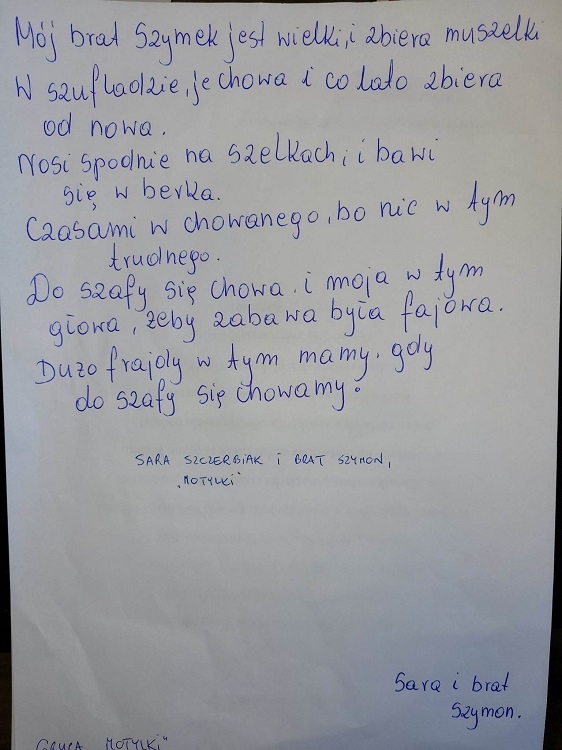 Mój brat Szymek jest wielki, i zbiera muszelki
W szufladzie, je chowa i co lato zbiera
od nowa.
Nosi spodnie na szelkach, i bawi
się w berka.
Czasami w chowanego, bo nic w tym
trudnego.
Do szafy się chowa, i moja w tym
głowa, żeby zabawa była fajowa.
Dużo frajdy w tym mamy, gdy
do szafy się chowamy.
SARA SZCZERBIAK I BRAT SZYMON,
"MOTYLKI"
Sara i brat
Szymon.
GRUPA "MOTYLKI"